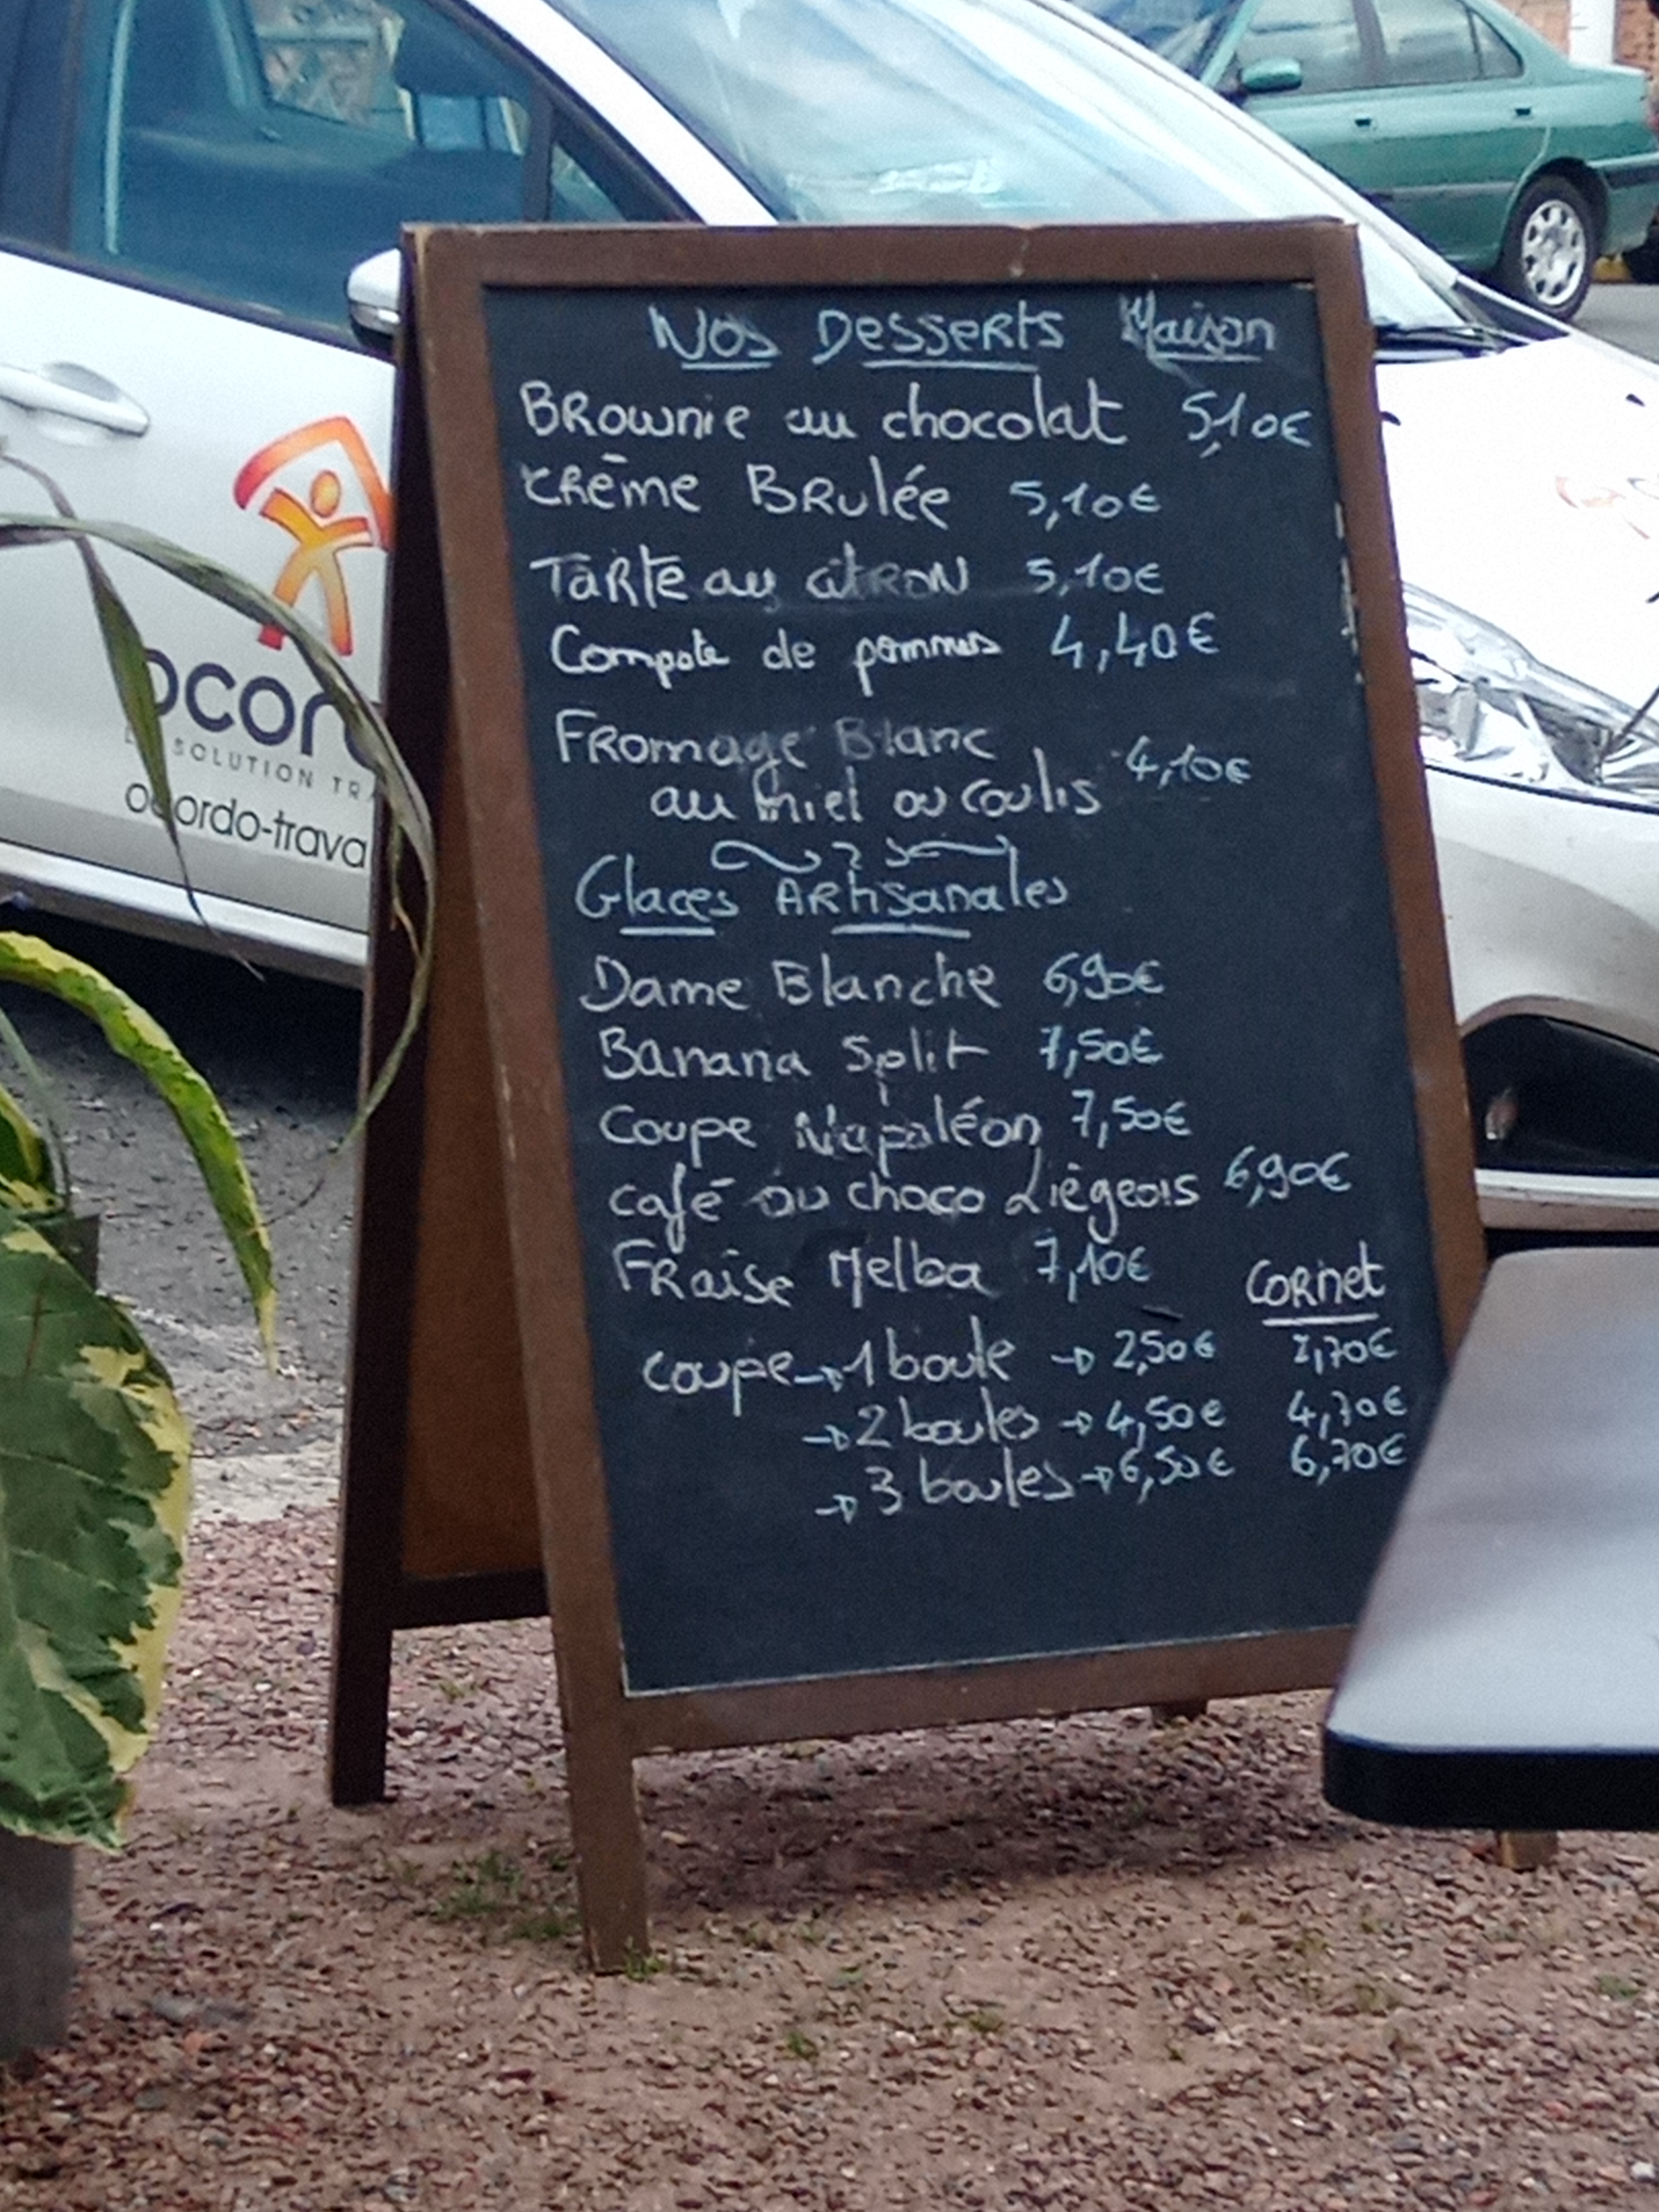 Nos Desserts Maison
Brownie au chocolat 5,10€
Crême Brulée 5,10€
Tarte au citron 5,10€
Compote de pommes 4,40€
Fromage Blanc
au miel ou coulis 4,10€
Glaces Artisanales
Dame Blanche 6,90€
Banana Split 7,50€
Coupe Napoléon 7,50€
café ou choco Liégeois 6,90€
Fraise Melba 7,10€
Cornet
coupe → 1 boule → 2,50€ 2,70€
→ 2 boules → 4,50€ 4,70€
→ 3 boules → 6,50€ 6,70€
ocor
SOLUTION TRA
ocordo-trava